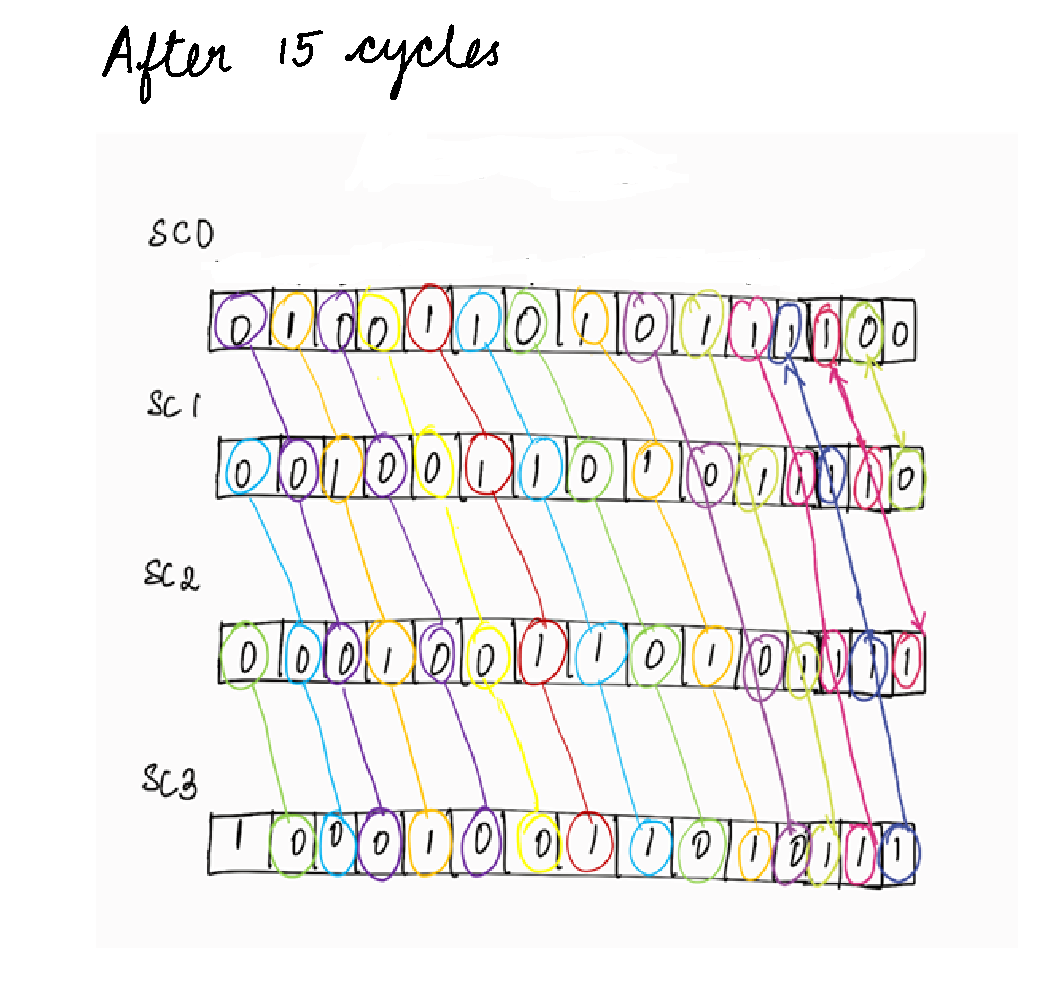 After 15 cycles
SC0
0 1 0 0 1 1 0 1 0 1 1 1 1 0 0
SC1
0 0 1 0 0 1 1 0 1 0 1 1 1 1 0
SC2
0 0 0 1 0 0 1 1 0 1 0 1 1 1 1
SC3
1 0 0 0 1 0 0 1 1 0 1 0 1 1 1